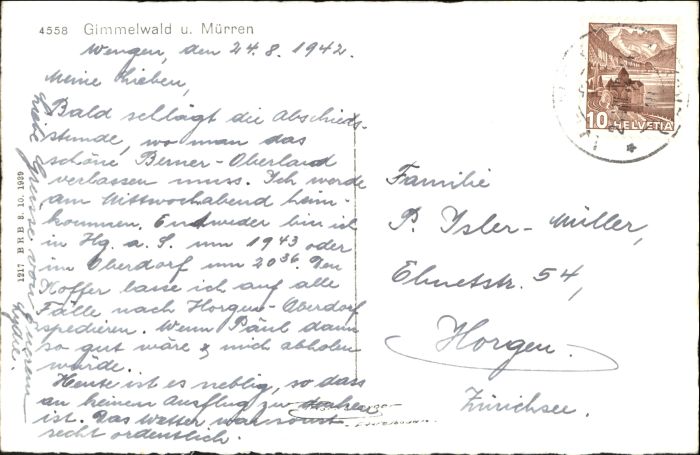 4558 Gimmelwald u. Mürren
Wengen, den 24.8.1942.
Meine Lieben,
Bald schlägt die Abschieds-
stunde, wo man das
schöne Berner-Oberland
verlassen muss. Ich werde
am Mittwochabend heim-
kommen. Entweder bin ich
in Hg. a. S. um 19 43 oder
im Oberdorf um 20 36. Den
Koffer lasse ich auf alle
Fälle nach Horgen-Oberdorf
spedieren. Wenn Päul dann
so gut wäre & mich abholen
würde.
Heute ist es neblig, so dass
an keinen Ausflug zu denken
ist. Das Wetter war sonst
recht ordentlich.
Liebe Grüsse von Eurem
Lydie.
1217 BRB 8. 10. 1939
10 HELVETIA
Familie
P. Isler-Müller,
Ebnetstr. 54,
Horgen.
Zürichsee.